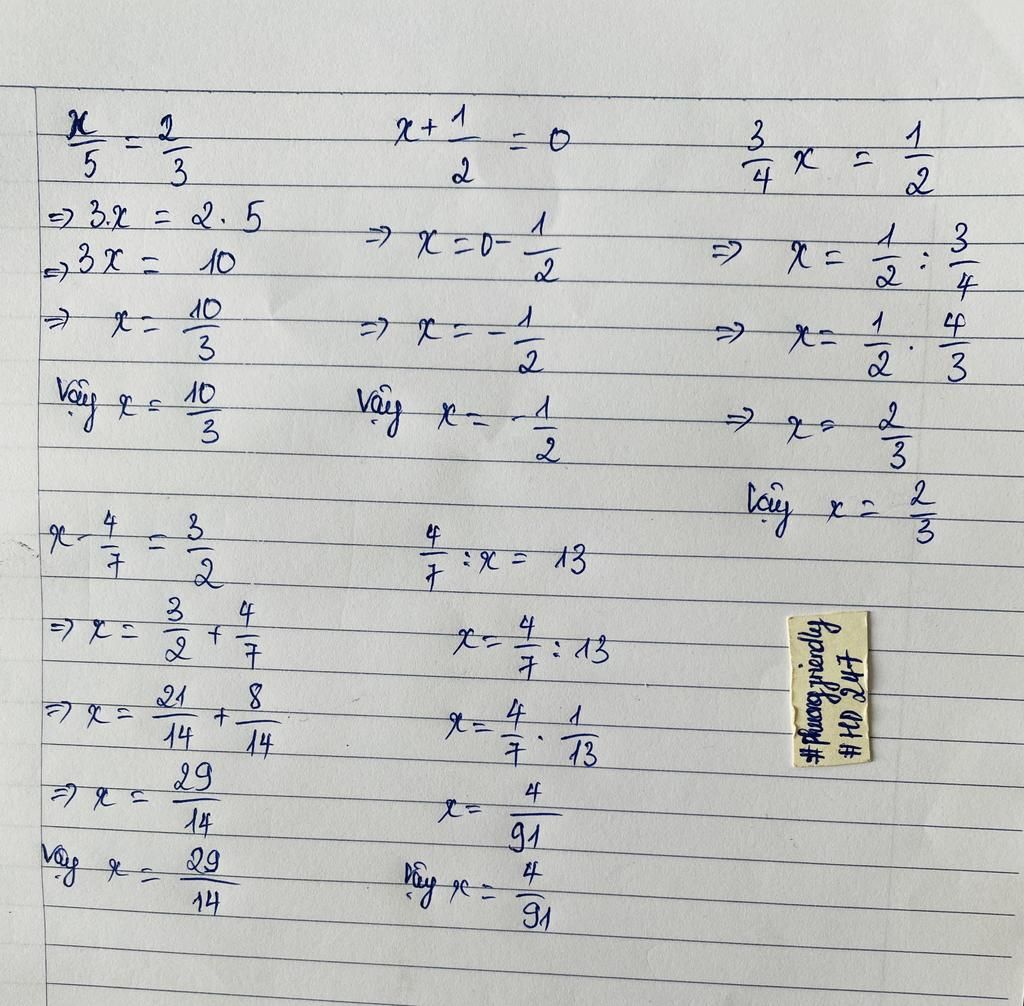 x/5 = 2/3
=> 3.x = 2 . 5
=> 3x = 10
=> x = 10/3
Vậy x = 10/3
x + 1/2 = 0
=> x = 0 - 1/2
=> x = - 1/2
Vậy x = - 1/2
3/4 x = 1/2
=> x = 1/2 : 3/4
=> x = 1/2 . 4/3
=> x = 2/3
Vậy x = 2/3
x - 4/7 = 3/2
=> x = 3/2 + 4/7
=> x = 21/14 + 8/14
=> x = 29/14
Vậy x = 29/14
4/7 : x = 13
x = 4/7 : 13
x = 4/7 . 1/13
x = 4/91
Vậy x = 4/91
#phuongfriendly
#HD 247